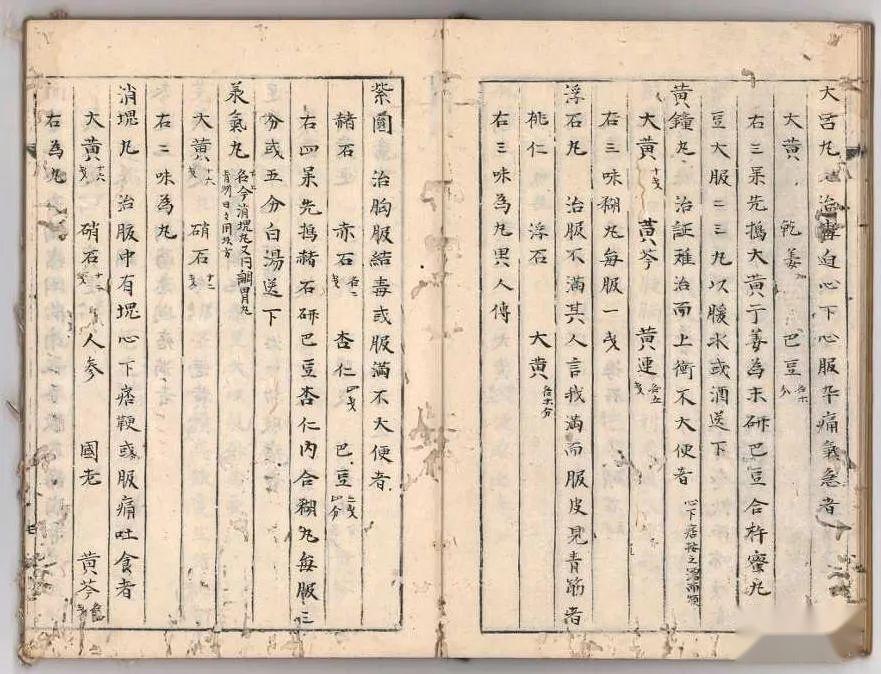 大呂丸 治毒迫心下心腹卒痛氣急者
大黄 乾姜 巴豆各六分
右三味先搗大黄于姜為末研巴豆合杵蜜丸
豆大服二三丸以暖水或酒送下
黄鐘丸 治証難治而上衝不大便者 心下痞按之濡而煩
大黄十戋 黄芩 黄連各五戋
右三味糊丸每服一戋
浮石丸 治腹不滿其人言我滿而腹皮見青筋者
桃仁 浮石 大黄各六分
右三味為丸異人傳
紫圓 治胸腹結毒或腹滿不大便者
赭石 赤石各二戋 杏仁四戋 巴豆二戋四分
右四味先搗赭石研巴豆杏仁内合糊丸每服三
分或五分白湯送下
承氣丸 名今消塊丸又同調胃丸
大黄十六戋 硝石十二戋
右二味為丸
消塊丸 治腹中有塊心下痞鞕或腹痛吐食者
大黄十六戋 硝石十二戋 人參 國老 黄芩
右為丸